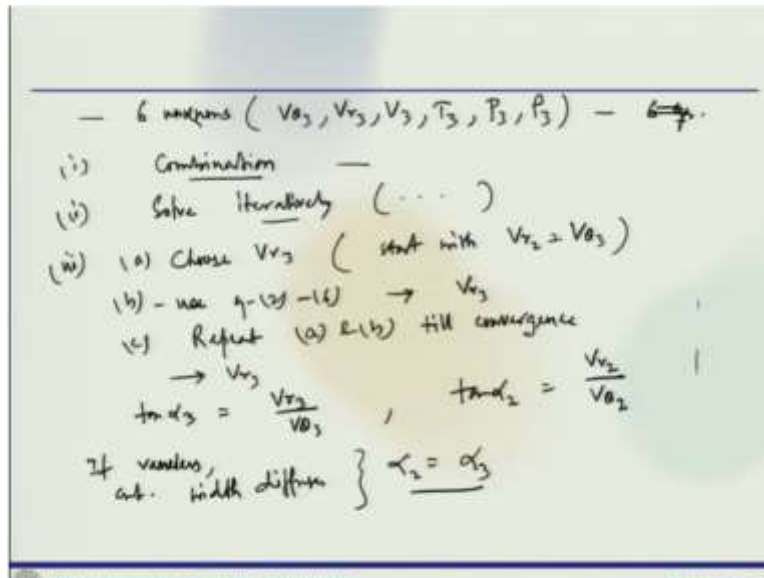 — 6 unknowns ( Vθ₃, Vr₃, V₃, T₃, P₃, ρ₃ ) —
(i) Combination —
(ii) Solve iteratively ( . . . . )
(iii) (a) Choose Vr₃ ( start with Vr₂ = Vθ₃ )
(b) - use (2) - (6) → Vr₃
(c) Repeat (a) & (b) till convergence
→ Vr₃
tan α₃ = Vr₃ / Vθ₃ , tan α₂ = Vr₂ / Vθ₂
If vaneless, } α₂ = α₃
width diffuser